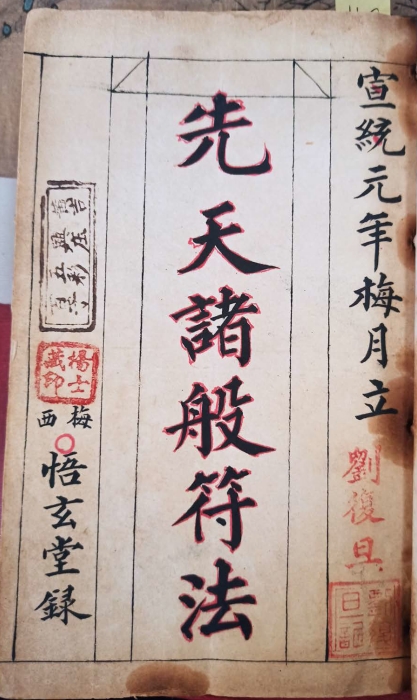 宣統元年梅月立
劉復
先天諸般符法
楊士
藏印
梅西
悟玄堂録